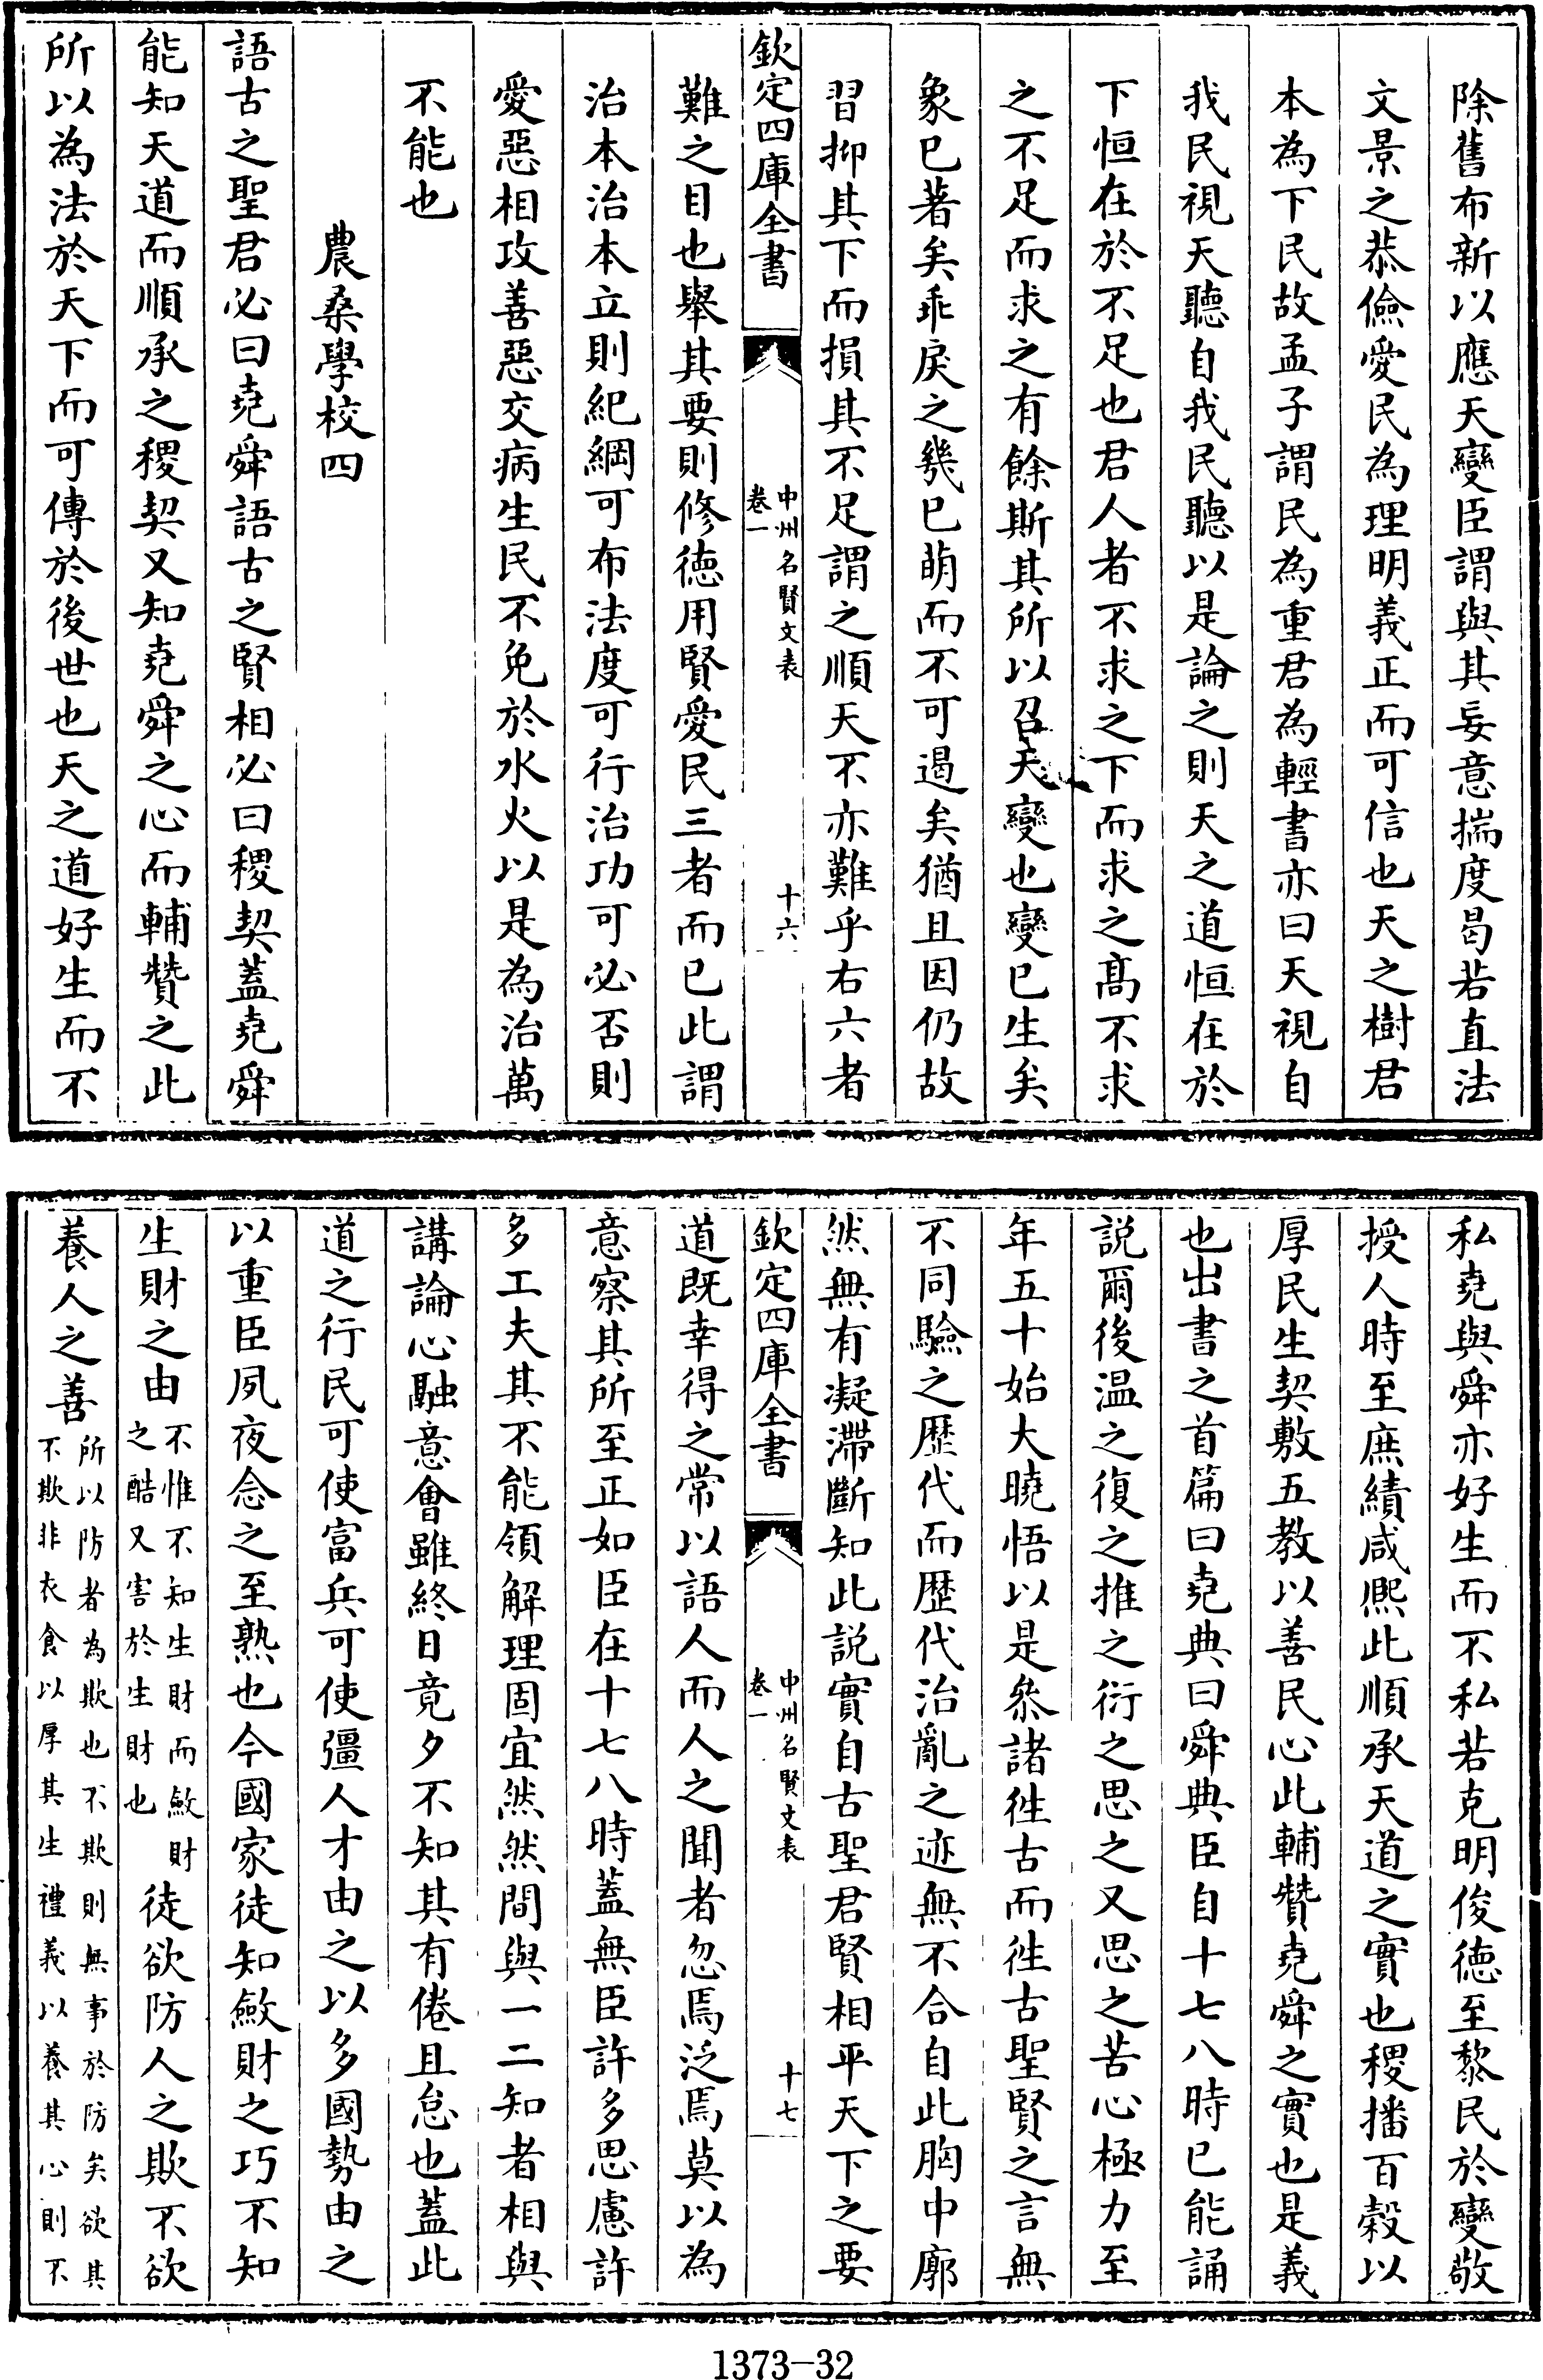 除舊布新以應天變臣謂與其妄意揣度曷若直法
文景之恭儉愛民為理明義正而可信也天之樹君
本為下民故孟子謂民為重君為輕書亦曰天視自
我民視天聽自我民聽以是論之則天之道恒在於
下恒在於不足也君人者不求之下而求之髙不求
之不足而求之有餘斯其所以召天變也變已生矣
象已著矣乖戾之幾已萌而不可遏矣猶且因仍故
習抑其下而損其不足謂之順天不亦難乎右六者
欽定四庫全書
中州名賢文表
卷一
十六
難之目也舉其要則修徳用賢愛民三者而已此謂
治本治本立則紀綱可布法度可行治功可必否則
愛惡相攻善惡交病生民不免於水火以是為治萬
不能也
農桑學校四
語古之聖君必曰堯舜語古之賢相必曰稷契蓋堯舜
能知天道而順承之稷契又知堯舜之心而輔贊之此
所以為法於天下而可傳於後世也天之道好生而不
私堯與舜亦好生而不私若克明俊徳至黎民於變敬
授人時至庶績咸熈此順承天道之實也稷播百榖以
厚民生契敷五教以善民心此輔贊堯舜之實也是義
也出書之首篇曰堯典曰舜典臣自十七八時已能誦
説爾後温之復之推之衍之思之又思之苦心極力至
年五十始大曉悟以是叅諸徃古而徃古聖賢之言無
不同驗之歴代而歴代治亂之迹無不合自此胸中廓
然無有凝滯斷知此説實自古聖君賢相平天下之要
欽定四庫全書
中州名賢文表
卷一
十七
道既幸得之常以語人而人之聞者忽焉泛焉莫以為
意察其所至正如臣在十七八時蓋無臣許多思慮許
多工夫其不能領解理固宜然然間與一二知者相與
講論心融意會雖終日竟夕不知其有倦且怠也蓋此
道之行民可使富兵可使彊人才由之以多國勢由之
以重臣夙夜念之至熟也今國家徒知斂財之巧不知
生財之由不惟不知生財而斂財之酷又害於生財也徒欲防人之欺不欲
養人之善所以防者為欺也不欺則無事於防矣欲其不欺非衣食以厚其生禮義以養其心則不
1373-32